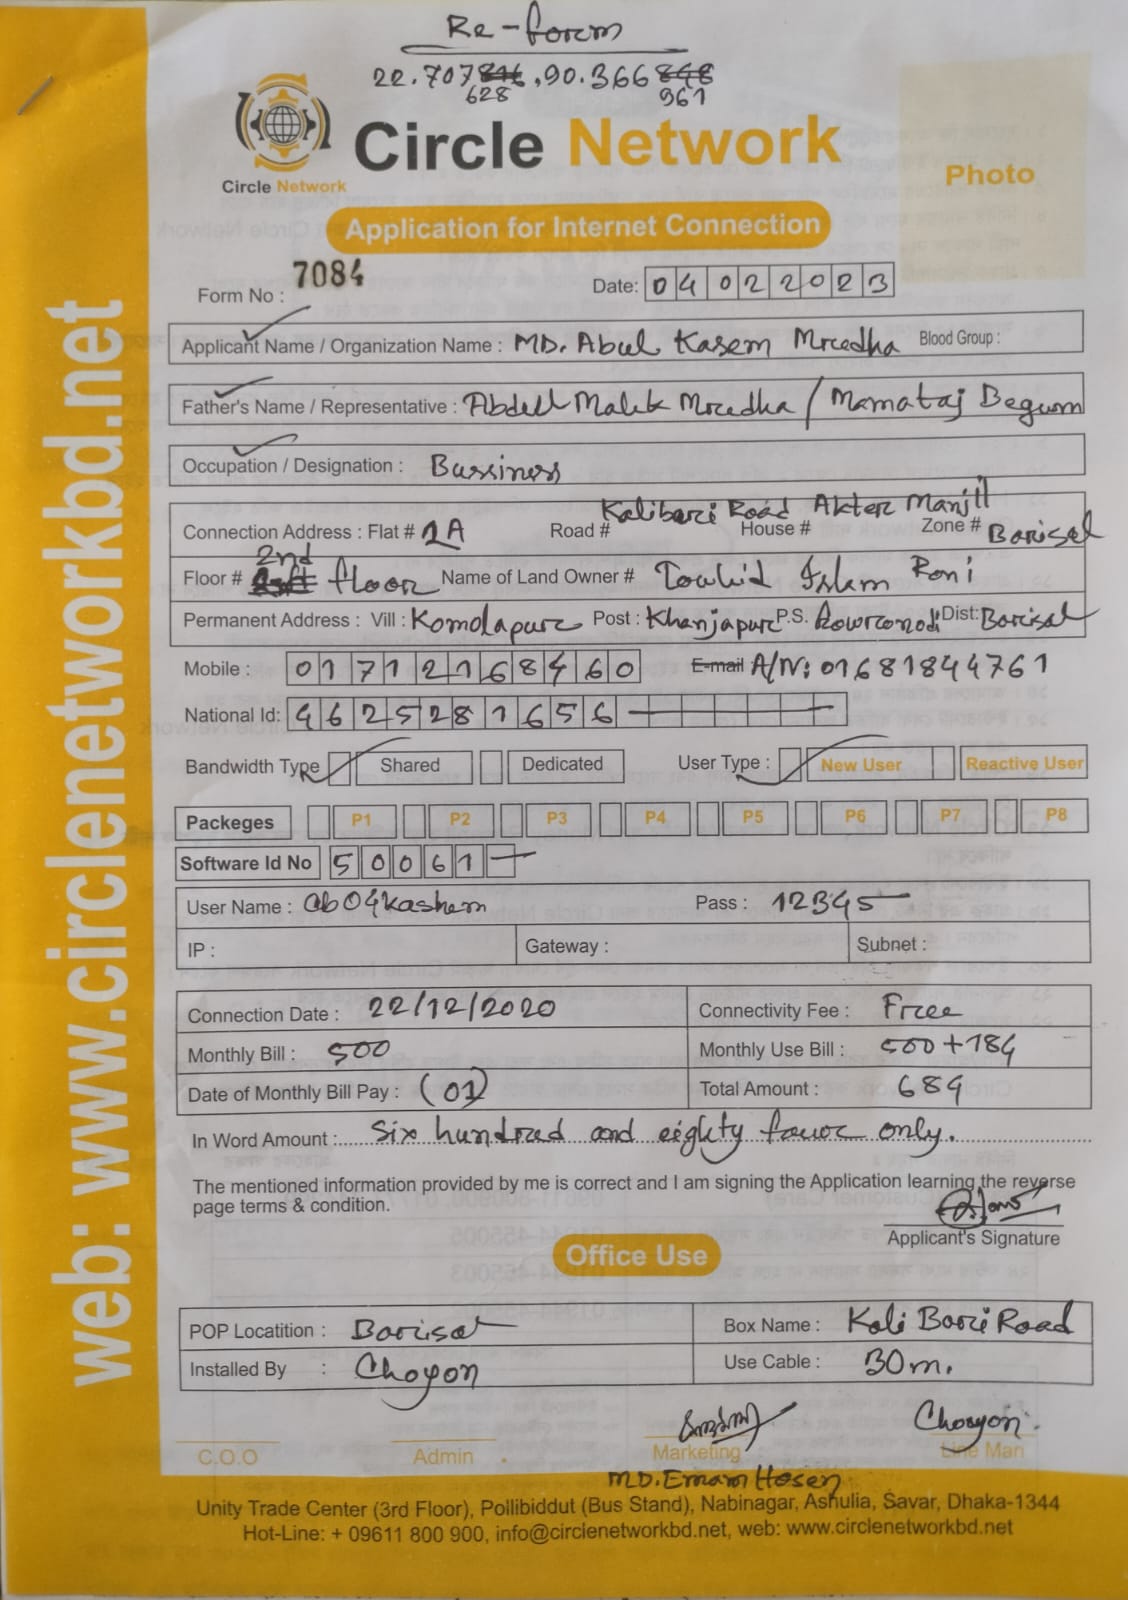 Re-form
22.707628, 90.366961
Circle Network
Circle Network
Photo
Application for Internet Connection
Form No : 7084
Date: 04022023
Applicant Name / Organization Name : MD. Abul Kasem Mredha Blood Group :
Father's Name / Representative : Abdul Malek Mredha / Mamataj Begum
Occupation / Designation : Bussiness
Connection Address : Flat # 1A Road # Kalibari Road House # Akter Manjil Zone # Barisal
Floor # 2nd floor Name of Land Owner # Towhid Islam Roni
Permanent Address : Vill : Komolapur Post : Khanjapur P.S. Gowronodi Dist: Barisal
Mobile : 01712168460 E-mail A/N: 01681844761
National Id: 4625281656
Bandwidth Type Shared Dedicated User Type : New User Reactive User
Packeges P1 P2 P3 P4 P5 P6 P7 P8
Software Id No 50061
User Name : ab04kashem Pass : 12345
IP : Gateway : Subnet :
Connection Date : 22/12/2020 Connectivity Fee : Free
Monthly Bill : 500 Monthly Use Bill : 500+184
Date of Monthly Bill Pay : (01) Total Amount : 684
In Word Amount : Six hundred and eighty four only.
The mentioned information provided by me is correct and I am signing the Application learning the reverse
page terms & condition.
Applicant's Signature
Office Use
POP Locatition : Barisal Box Name : Kali Bari Road
Installed By : Choyon Use Cable : 30m.
Choyon
C.O.O Admin Marketing Line Man
MD. Emam Hosen
Unity Trade Center (3rd Floor), Pollibiddut (Bus Stand), Nabinagar, Ashulia, Savar, Dhaka-1344
Hot-Line: + 09611 800 900, info@circlenetworkbd.net, web: www.circlenetworkbd.net
web: www.circlenetworkbd.net